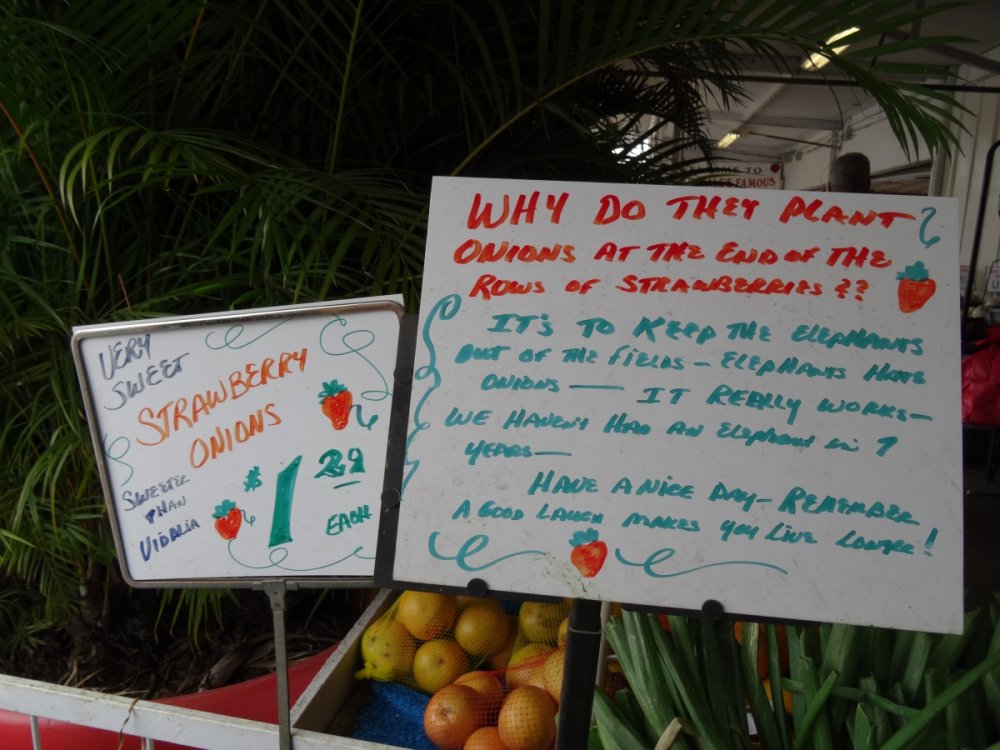 VERY
SWEET
STRAWBERRY
ONIONS
SWEETER
THAN
VIDALIA
$1.29
EACH
WHY DO THEY PLANT
ONIONS AT THE END OF THE
ROWS OF STRAWBERRIES??
IT'S TO KEEP THE ELEPHANTS
OUT OF THE FIELDS — ELEPHANTS HATE
ONIONS — IT REALLY WORKS —
WE HAVEN'T HAD AN ELEPHANT IN 7
YEARS —
HAVE A NICE DAY — REMEMBER
A GOOD LAUGH MAKES YOU LIVE LONGER!
TO
FAMOUS